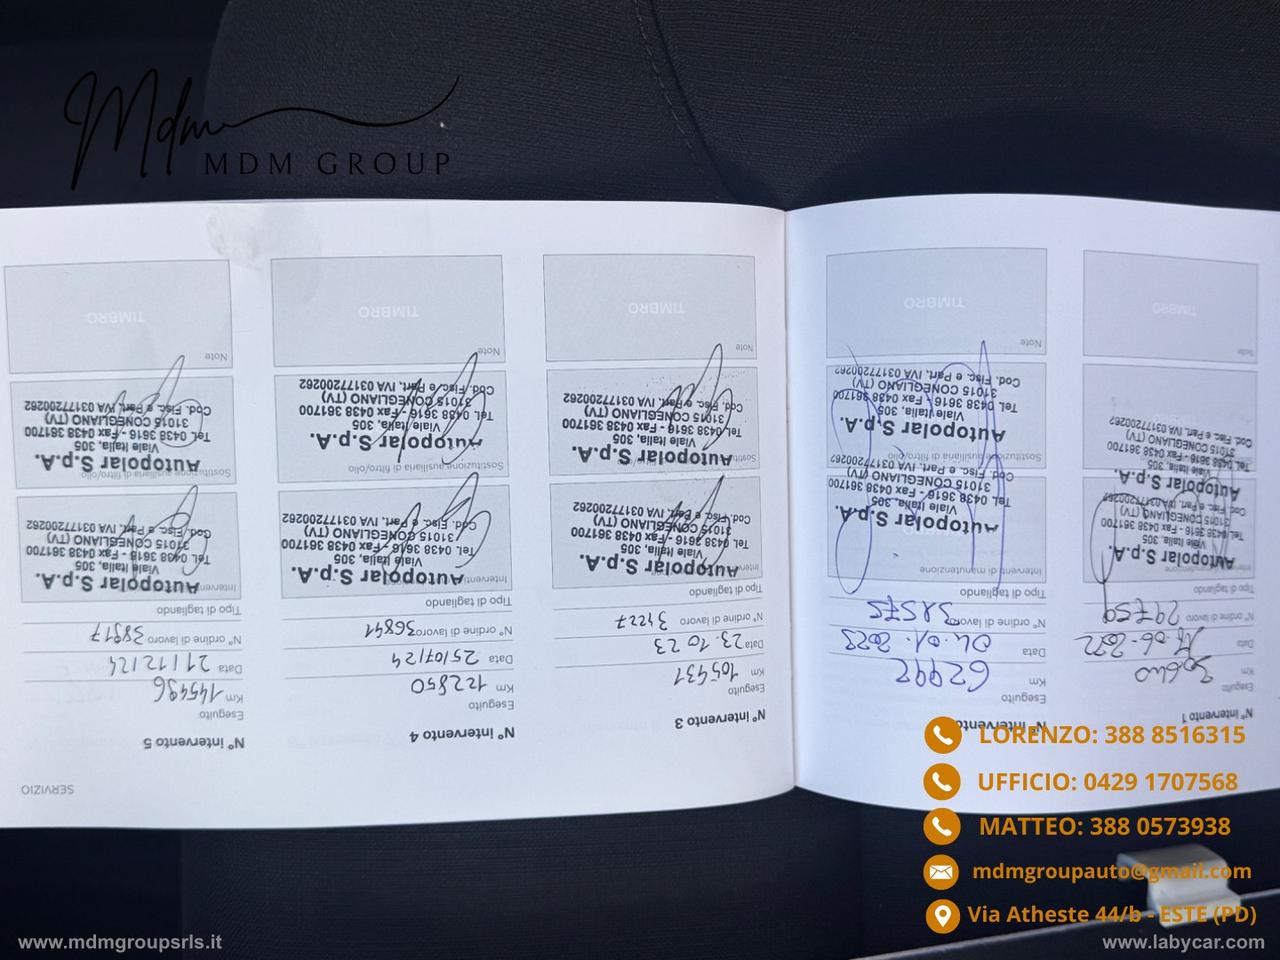 Mdm
MDM GROUP
N° intervento 1
Eseguito
Km 30640
Data
N° ordine di lavoro 29759
Tipo di tagliando
Autopolar S.p.A.
Viale Italia, 305
Tel. 0438 3616 - Fax 0438 361700
31015 CONEGLIANO (TV)
Cod. Fisc. e Part. IVA 03177200262
Autopolar S.p.A.
Viale Italia, 305
Tel. 0438 3616 - Fax 0438 361700
31015 CONEGLIANO (TV)
Cod. Fisc. e Part. IVA 03177200262
Note
TIMBRO
N° intervento
Eseguito
Km 62992
Data 04.01.2023
N° ordine di lavoro 32575
Tipo di tagliando
Interventi di manutenzione
Autopolar S.p.A.
Viale Italia, 305
Tel. 0438 3616 - Fax 0438 361700
31015 CONEGLIANO (TV)
Cod. Fisc. e Part. IVA 03177200262
Sostituzione ausiliaria di filtro/olio
Autopolar S.p.A.
Viale Italia, 305
Tel. 0438 3616 - Fax 0438 361700
31015 CONEGLIANO (TV)
Cod. Fisc. e Part. IVA 03177200262
Note
TIMBRO
N° intervento 3
Eseguito
Km 105431
Data 23.10 23
N° ordine di lavoro 34227
Tipo di tagliando
Interventi
Autopolar S.p.A.
Viale Italia, 305
Tel. 0438 3616 - Fax 0438 361700
31015 CONEGLIANO (TV)
Cod. Fisc. e Part. IVA 03177200262
Sostituzione ausiliaria di filtro/olio
Autopolar S.p.A.
Viale Italia, 305
Tel. 0438 3616 - Fax 0438 361700
31015 CONEGLIANO (TV)
Cod. Fisc. e Part. IVA 03177200262
Note
TIMBRO
SERVIZIO
N° intervento 4
Eseguito
Km 122850
Data 25/07/24
N° ordine di lavoro 36841
Tipo di tagliando
Interventi
Autopolar S.p.A.
Viale Italia, 305
Tel. 0438 3616 - Fax 0438 361700
31015 CONEGLIANO (TV)
Cod. Fisc. e Part. IVA 03177200262
Sostituzione ausiliaria di filtro/olio
Autopolar S.p.A.
Viale Italia, 305
Tel. 0438 3616 - Fax 0438 361700
31015 CONEGLIANO (TV)
Cod. Fisc. e Part. IVA 03177200262
Note
TIMBRO
N° intervento 5
Eseguito
Km 145496
Data 21/12/24
N° ordine di lavoro 38917
Tipo di tagliando
Interventi
Autopolar S.p.A.
Viale Italia, 305
Tel. 0438 3616 - Fax 0438 361700
31015 CONEGLIANO (TV)
Cod. Fisc. e Part. IVA 03177200262
Sostituzione ausiliaria di filtro/olio
Autopolar S.p.A.
Viale Italia, 305
Tel. 0438 3616 - Fax 0438 361700
31015 CONEGLIANO (TV)
Cod. Fisc. e Part. IVA 03177200262
Note
TIMBRO
LORENZO: 388 8516315
UFFICIO: 0429 1707568
MATTEO: 388 0573938
mdmgroupauto@gmail.com
Via Atheste 44/b - ESTE (PD)
www.mdmgroupsrls.it
www.labycar.com